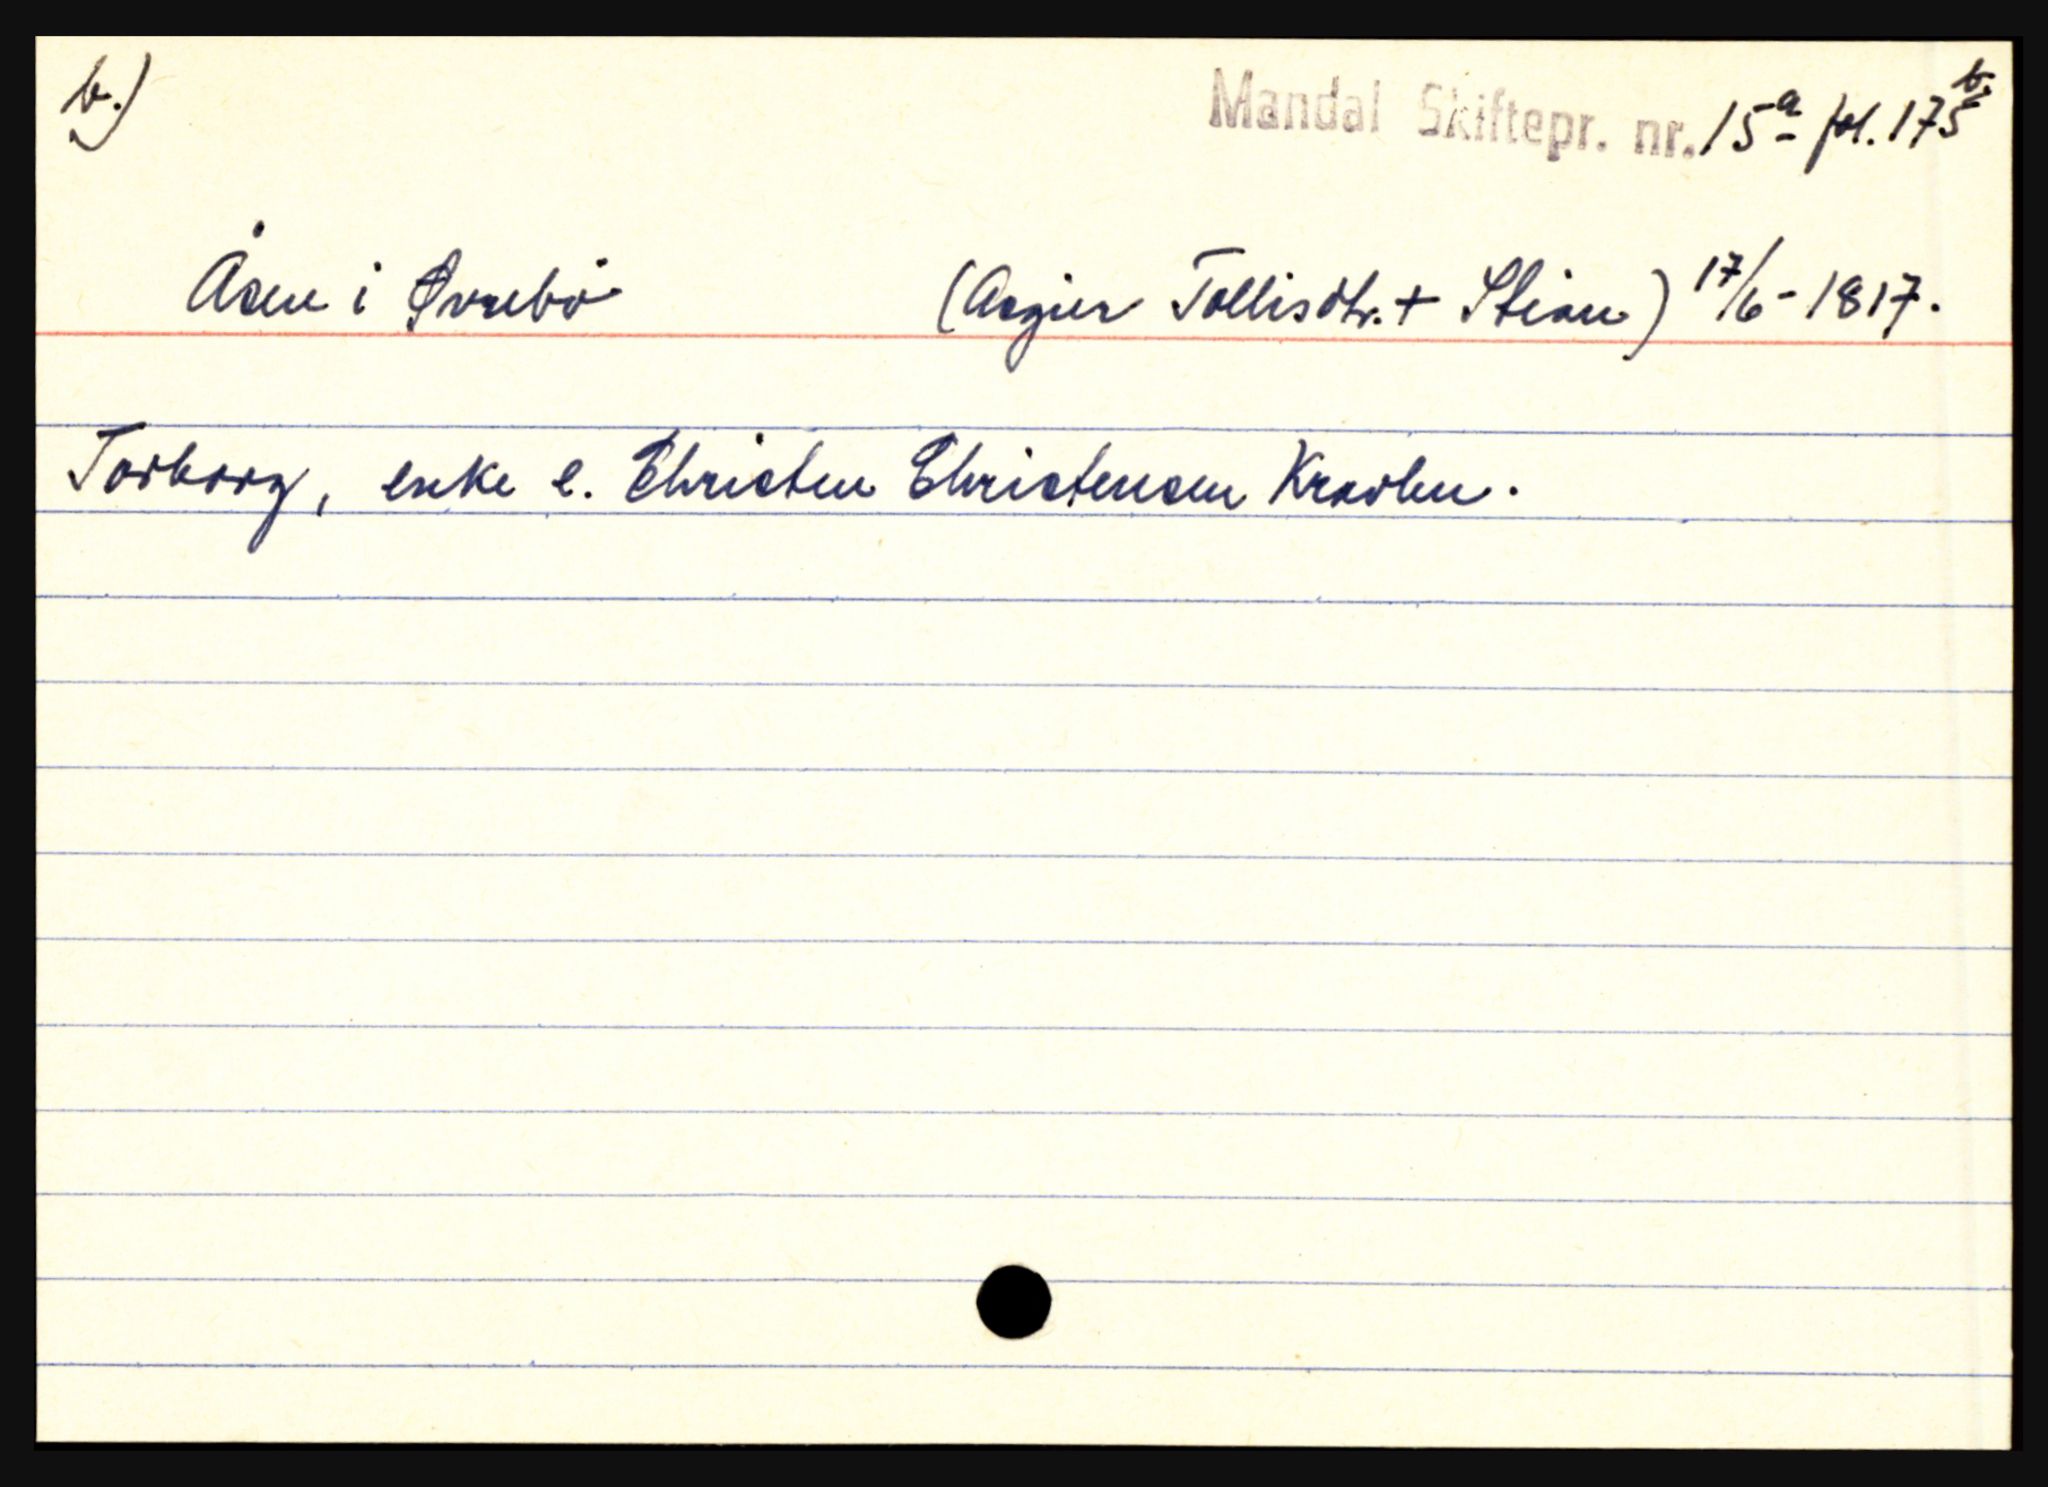 b.)
Mandal Skiftepr. nr. 15a fol. 175b.
Åsen i Øvrebö (Asgier Tollisdtr. + Stian) 17/6-1817.
Torborg, enke e. Christen Christensen